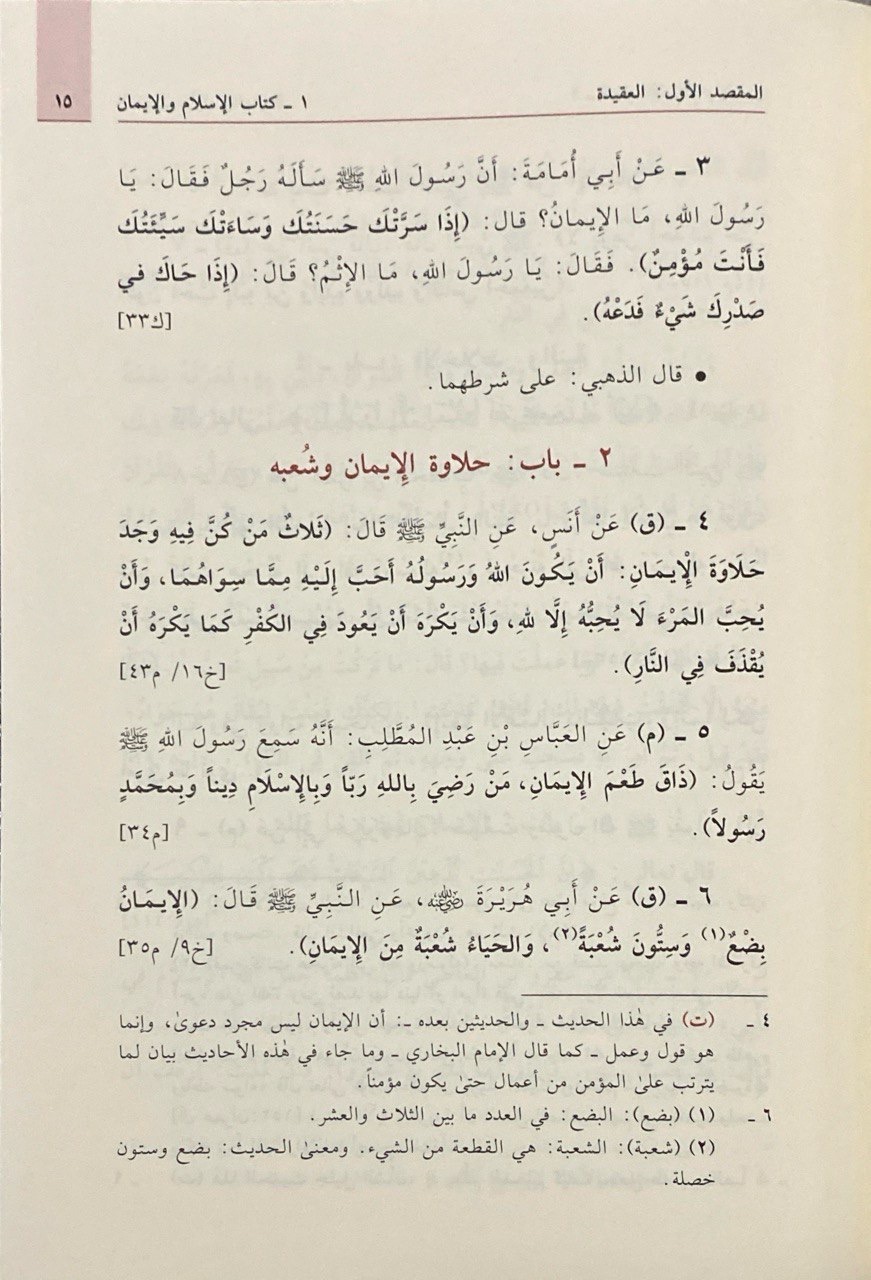 المقصد الأول: العقيدة
١ ـ كتاب الإسلام والإيمان
١٥
٣ ـ عَنْ أَبِي أُمَامَةَ: أَنَّ رَسُولَ اللهِ ﷺ سَأَلَهُ رَجُلٌ فَقَالَ: يَا
رَسُولَ اللهِ، مَا الإِيمانُ؟ قال: (إِذَا سَرَّتْكَ حَسَنَتُكَ وَسَاءَتْكَ سَيِّئَتُكَ
فَأَنْتَ مُؤْمِنٌ). فَقَالَ: يَا رَسُولَ اللهِ، مَا الإِثْمُ؟ قَالَ: (إِذَا حَاكَ في
صَدْرِكَ شَيْءٌ فَدَعْهُ). [ك٣٣]
● قال الذهبي: على شرطهما.
٢ ـ باب: حلاوة الإيمان وشُعبه
٤ ـ (ق) عَنْ أَنَسٍ، عَنِ النَّبِيِّ ﷺ قَالَ: (ثَلاثٌ مَنْ كُنَّ فِيهِ وَجَدَ
حَلَاوَةَ الْإِيْمَانِ: أَنْ يَكُونَ اللهُ وَرَسُولُهُ أَحَبَّ إِلَيْهِ مِمَّا سِوَاهُمَا، وَأَنْ
يُحِبَّ المَرْءَ لَا يُحِبُّهُ إِلَّا للهِ، وَأَنْ يَكْرَهَ أَنْ يَعُودَ فِي الكُفْرِ كَمَا يَكْرَهُ أَنْ
يُقْذَفَ فِي النَّارِ). [خ١٦/ م٤٣]
٥ ـ (م) عَنِ العَبَّاسِ بْنِ عَبْدِ المُطَّلِبِ: أَنَّهُ سَمِعَ رَسُولَ اللهِ ﷺ
يَقُولُ: (ذَاقَ طَعْمَ الإِيمَانِ، مَنْ رَضِيَ بِاللهِ رَبّاً وَبِالإِسْلَامِ دِيناً وَبِمُحَمَّدٍ
رَسُولاً). [م٣٤]
٦ ـ (ق) عَنْ أَبِي هُرَيْرَةَ رضي الله عنه، عَنِ النَّبِيِّ ﷺ قَالَ: (الإِيمَانُ
بِضْعٌ(١) وَسِتُّونَ شُعْبَةً(٢)، وَالحَيَاءُ شُعْبَةٌ مِنَ الإِيمَانِ). [خ٩/ م٣٥]
٤ ـ (ت) في هٰذا الحديث ـ والحديثين بعده ـ: أن الإيمان ليس مجرد دعوىٰ، وإنما
هو قول وعمل ـ كما قال الإمام البخاري ـ وما جاء في هٰذه الأحاديث بيان لما
يترتب علىٰ المؤمن من أعمال حتىٰ يكون مؤمناً.
٦ ـ (١) (بضع): البضع: في العدد ما بين الثلاث والعشر.
(٢) (شعبة): الشعبة: هي القطعة من الشيء. ومعنىٰ الحديث: بضع وستون
خصلة.